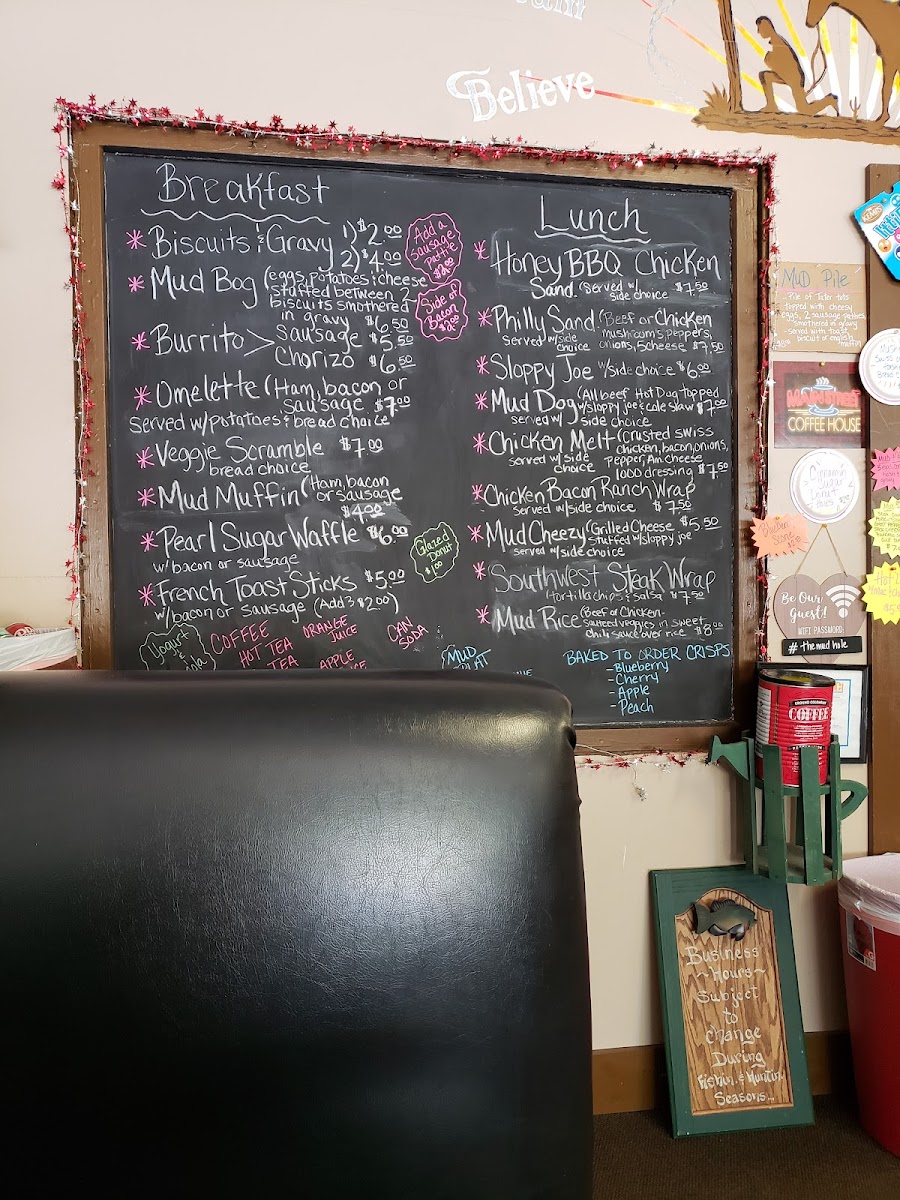 Believe
Breakfast
* Biscuits & Gravy 1) $2.00
2) $4.00
* Mud Bog (eggs, potatoes & cheese
stuffed between 2
biscuits smothered
in gravy $6.50
* Burrito > Sausage $5.50
Chorizo $6.50
* Omelette (Ham, bacon or
sausage $7.00
Served w/potatoes & bread choice
* Veggie Scramble $7.00
bread choice
* Mud Muffin (Ham, bacon
or sausage
$4.00
* Pearl Sugar Waffle $6.00
w/ bacon or sausage
* French Toast Sticks $5.00
w/bacon or sausage (Add 3 $2.00)
Add a
Sausage
pattie
$2.00
Side of
Bacon
$2.00
Glazed
Donut
$1.00
Yogurt
COFFEE
HOT TEA
TEA
ORANGE
JUICE
APPLE
CAN
SODA
MUD
Lunch
* Honey BBQ Chicken
Sand. (Served w/
side choice $7.50
* Philly Sand (Beef or Chicken
Served w/side
choice
mushrooms, peppers,
onions, & cheese $7.50
* Sloppy Joe w/side choice $6.00
* Mud Dog (All beef Hot Dog Topped
w/sloppy joe & cole slaw $7.00
served w/ side choice
* Chicken Melt (Crusted swiss
chicken, bacon, onions,
served w/ side
choice
pepper, Am cheese
1000 dressing $7.50
* Chicken Bacon Ranch Wrap
served w/side choice $7.50
* Mud Cheezy (Grilled Cheese $5.50
stuffed w/sloppy joe
served w/side choice
* Southwest Steak Wrap
tortilla chips & salsa $7.50
* Mud Rice (Beef or Chicken-
Sauteed veggies in sweet
chili sauce over rice $8.00
BAKED TO ORDER CRISPS
- Blueberry
- Cherry
- Apple
- Peach
MUD PILE
Pile of Tater tots
topped with cheesy
eggs, 2 sausage patties,
smothered in gravy
served with toast,
biscuit or english
muffin
MAIN STREET
COFFEE HOUSE
Cinnamon
Sugar
Donut
Be Our
Guest!
WIFI PASSWORD:
# themudhole
COFFEE
Business
~ Hours ~
Subject
to
Change
During
Fishin. & Huntin.
Seasons...